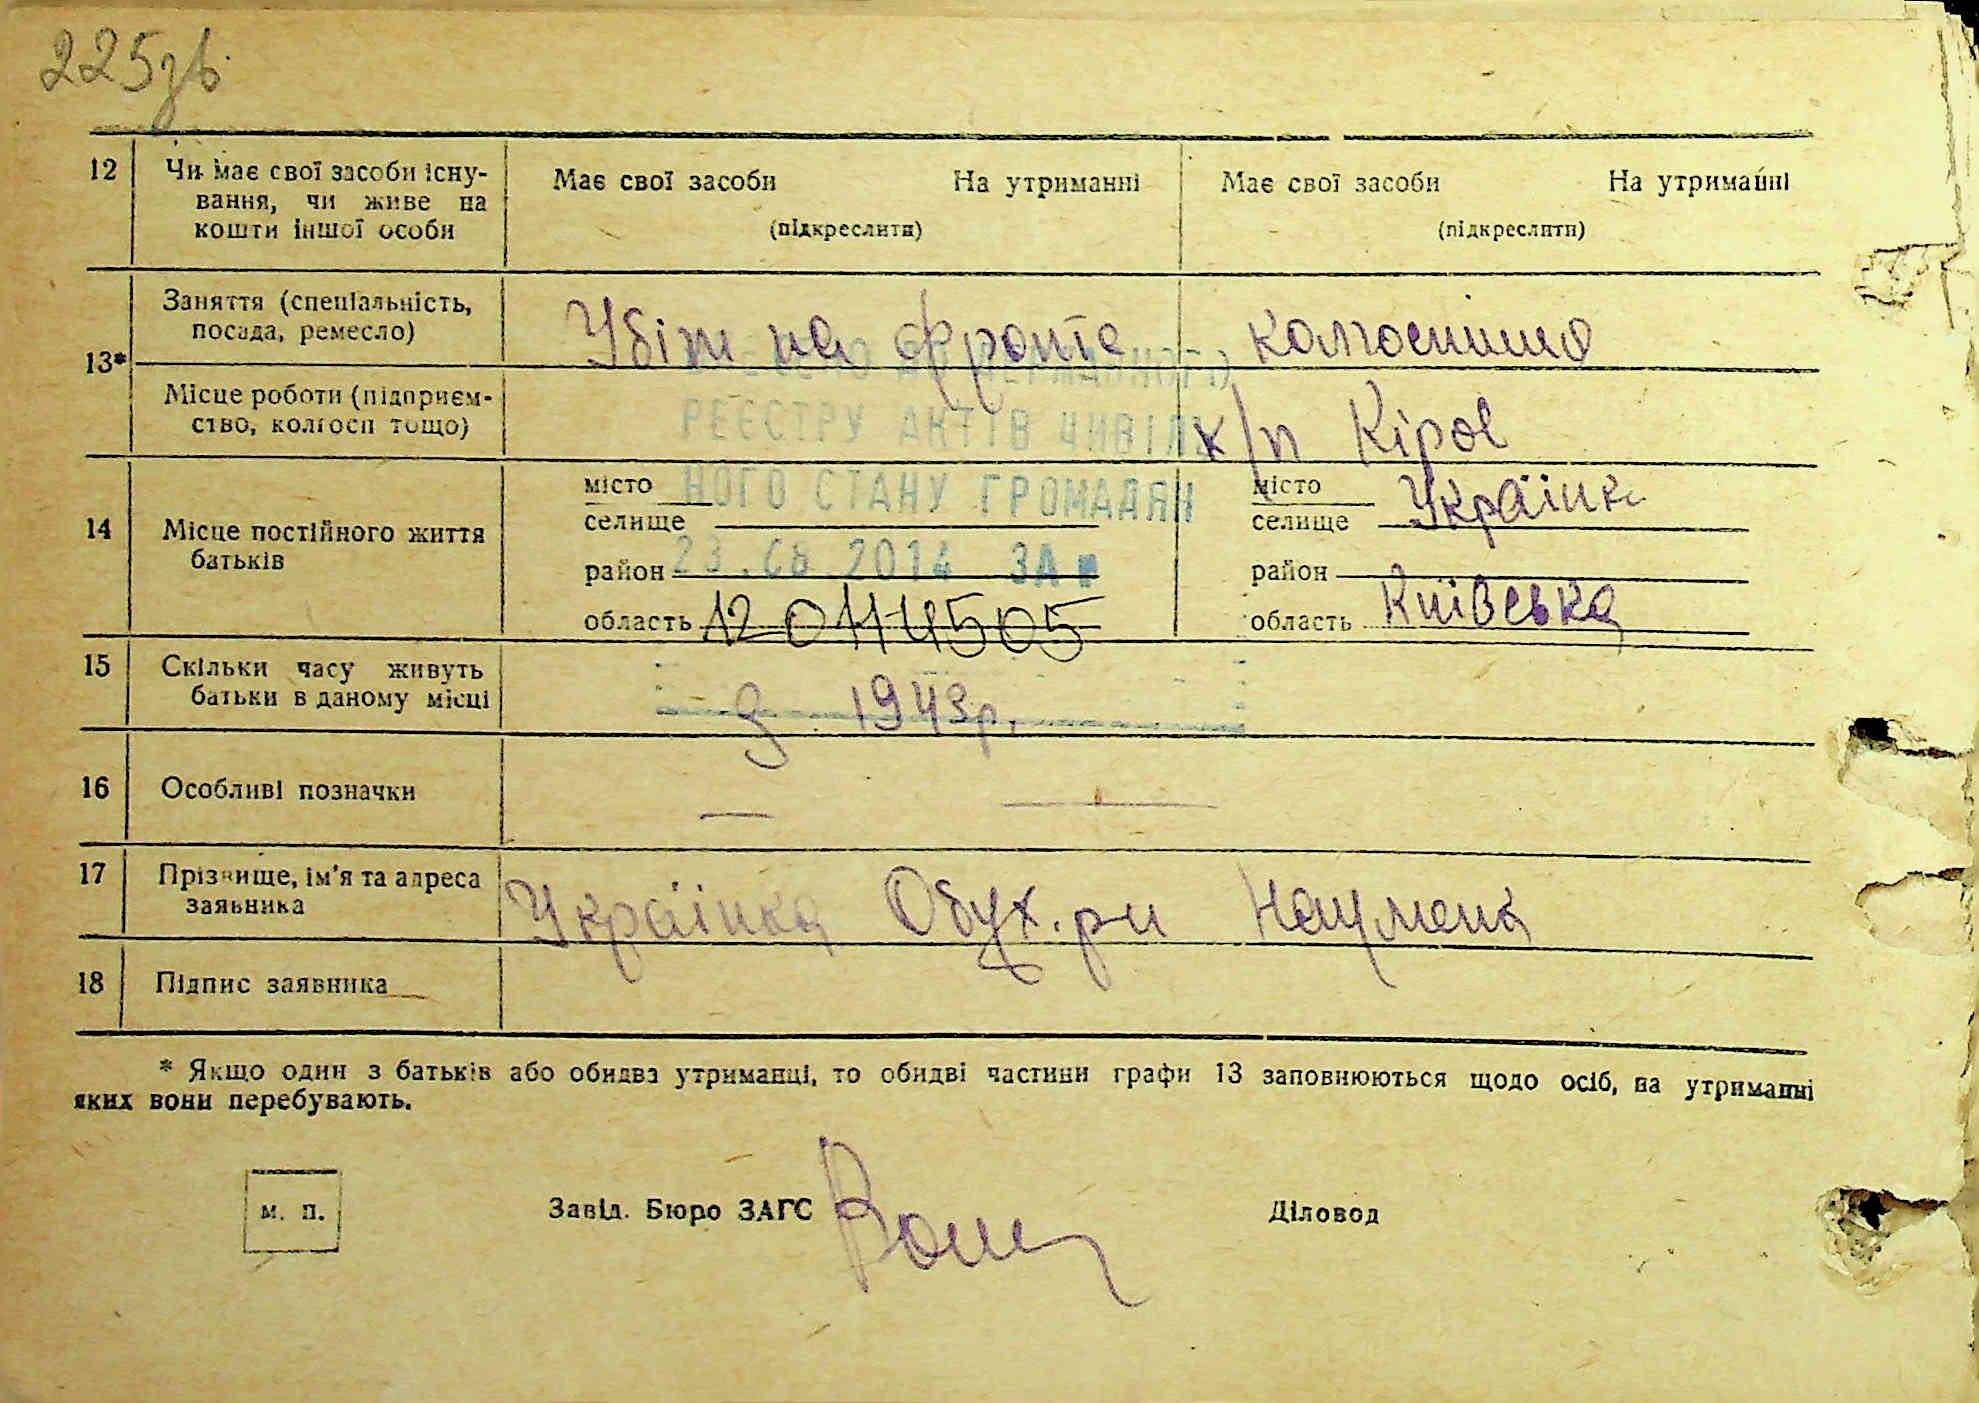 225зв.
12 Чи має свої засоби існу-
вання, чи живе на
кошти іншої особи
Має свої засоби На утриманні
(підкреслити)
Має свої засоби На утриманні
(підкреслити)
13* Заняття (спеціальність,
посада, ремесло)
Убіт на фронте
Місце роботи (підприєм-
ство, колгосп тощо)
к/п Кіров
ДЕРЖАВНОГО
РЕЄСТРУ АКТІВ ЦИВІЛЬ
НОГО СТАНУ ГРОМАДЯН
23.08 2014 ЗА №
12 0114505
14 Місце постійного життя
батьків
місто
селище
район
область
місто
селище Українка
район
область Київська
15 Скільки часу живуть
батьки в даному місці
з 1943р.
16 Особливі позначки
— —
17 Прізвище, ім'я та адреса
заявника
Українка Обух. рн Науменк
18 Підпис заявника
* Якщо один з батьків або обидва утриманці, то обидві частини графи 13 заповнюються щодо осіб, на утриманні
яких вони перебувають.
м. п.
Завід. Бюро ЗАГС
Діловод